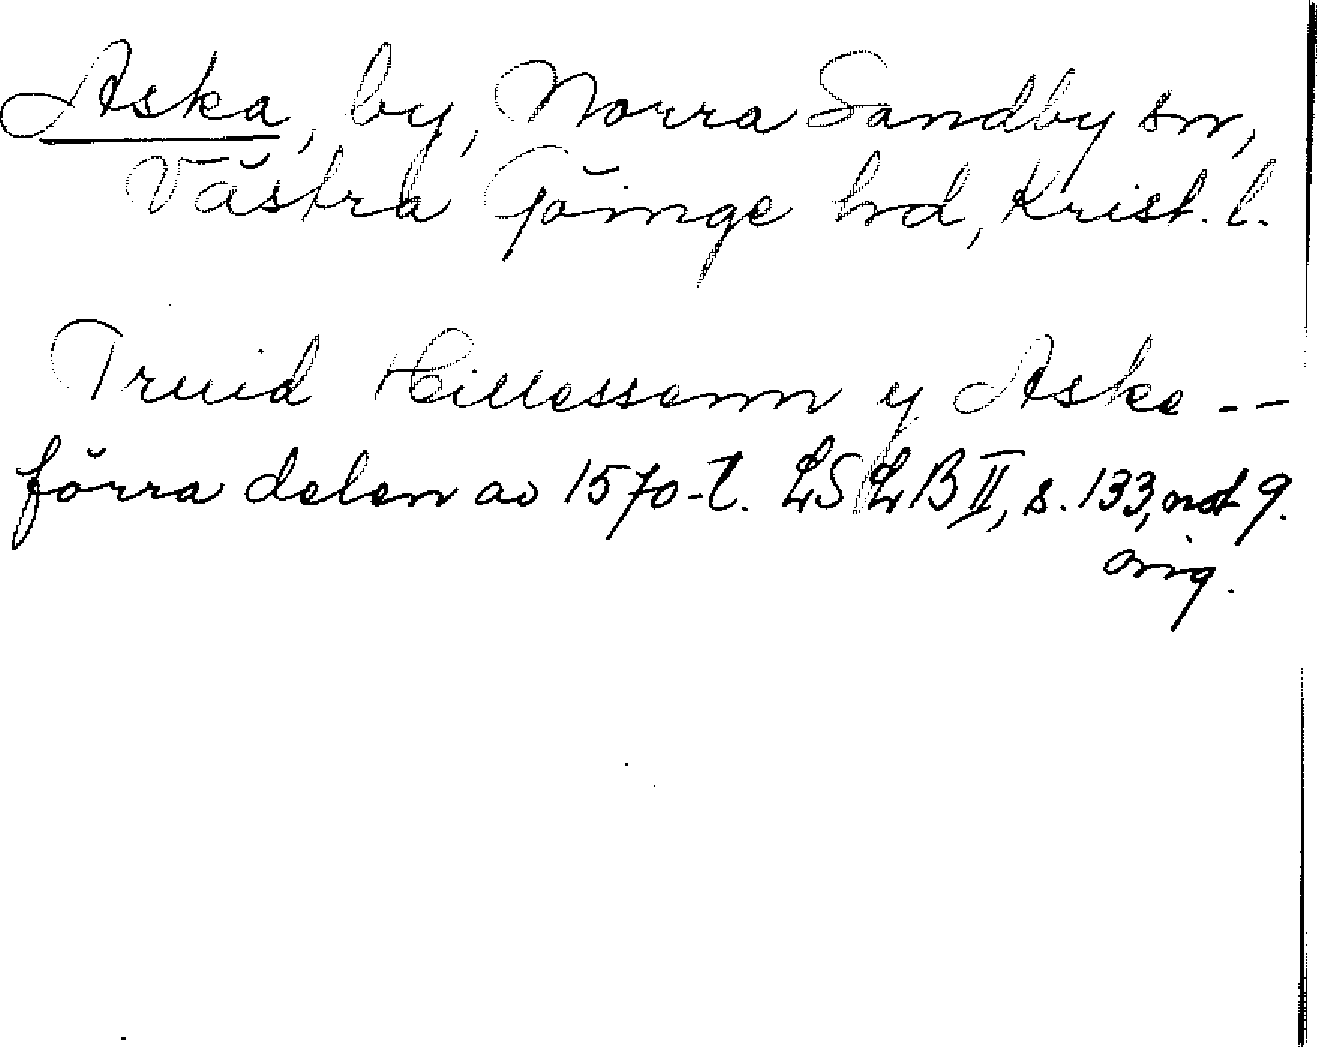 Aska, by, Norra Sandby sn,
Västra Göinge hd, Krist. l.
Truid Hillessenn y Aske --
förra delen av 1570-t. LSLB II, s. 133, not 9.
orig.